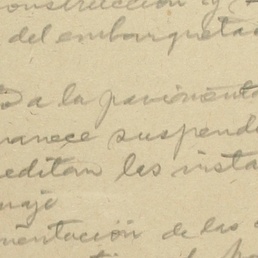 construccion y
del embanquetad
a la paviment
manece suspend
editan las insta
naje
mentación de las